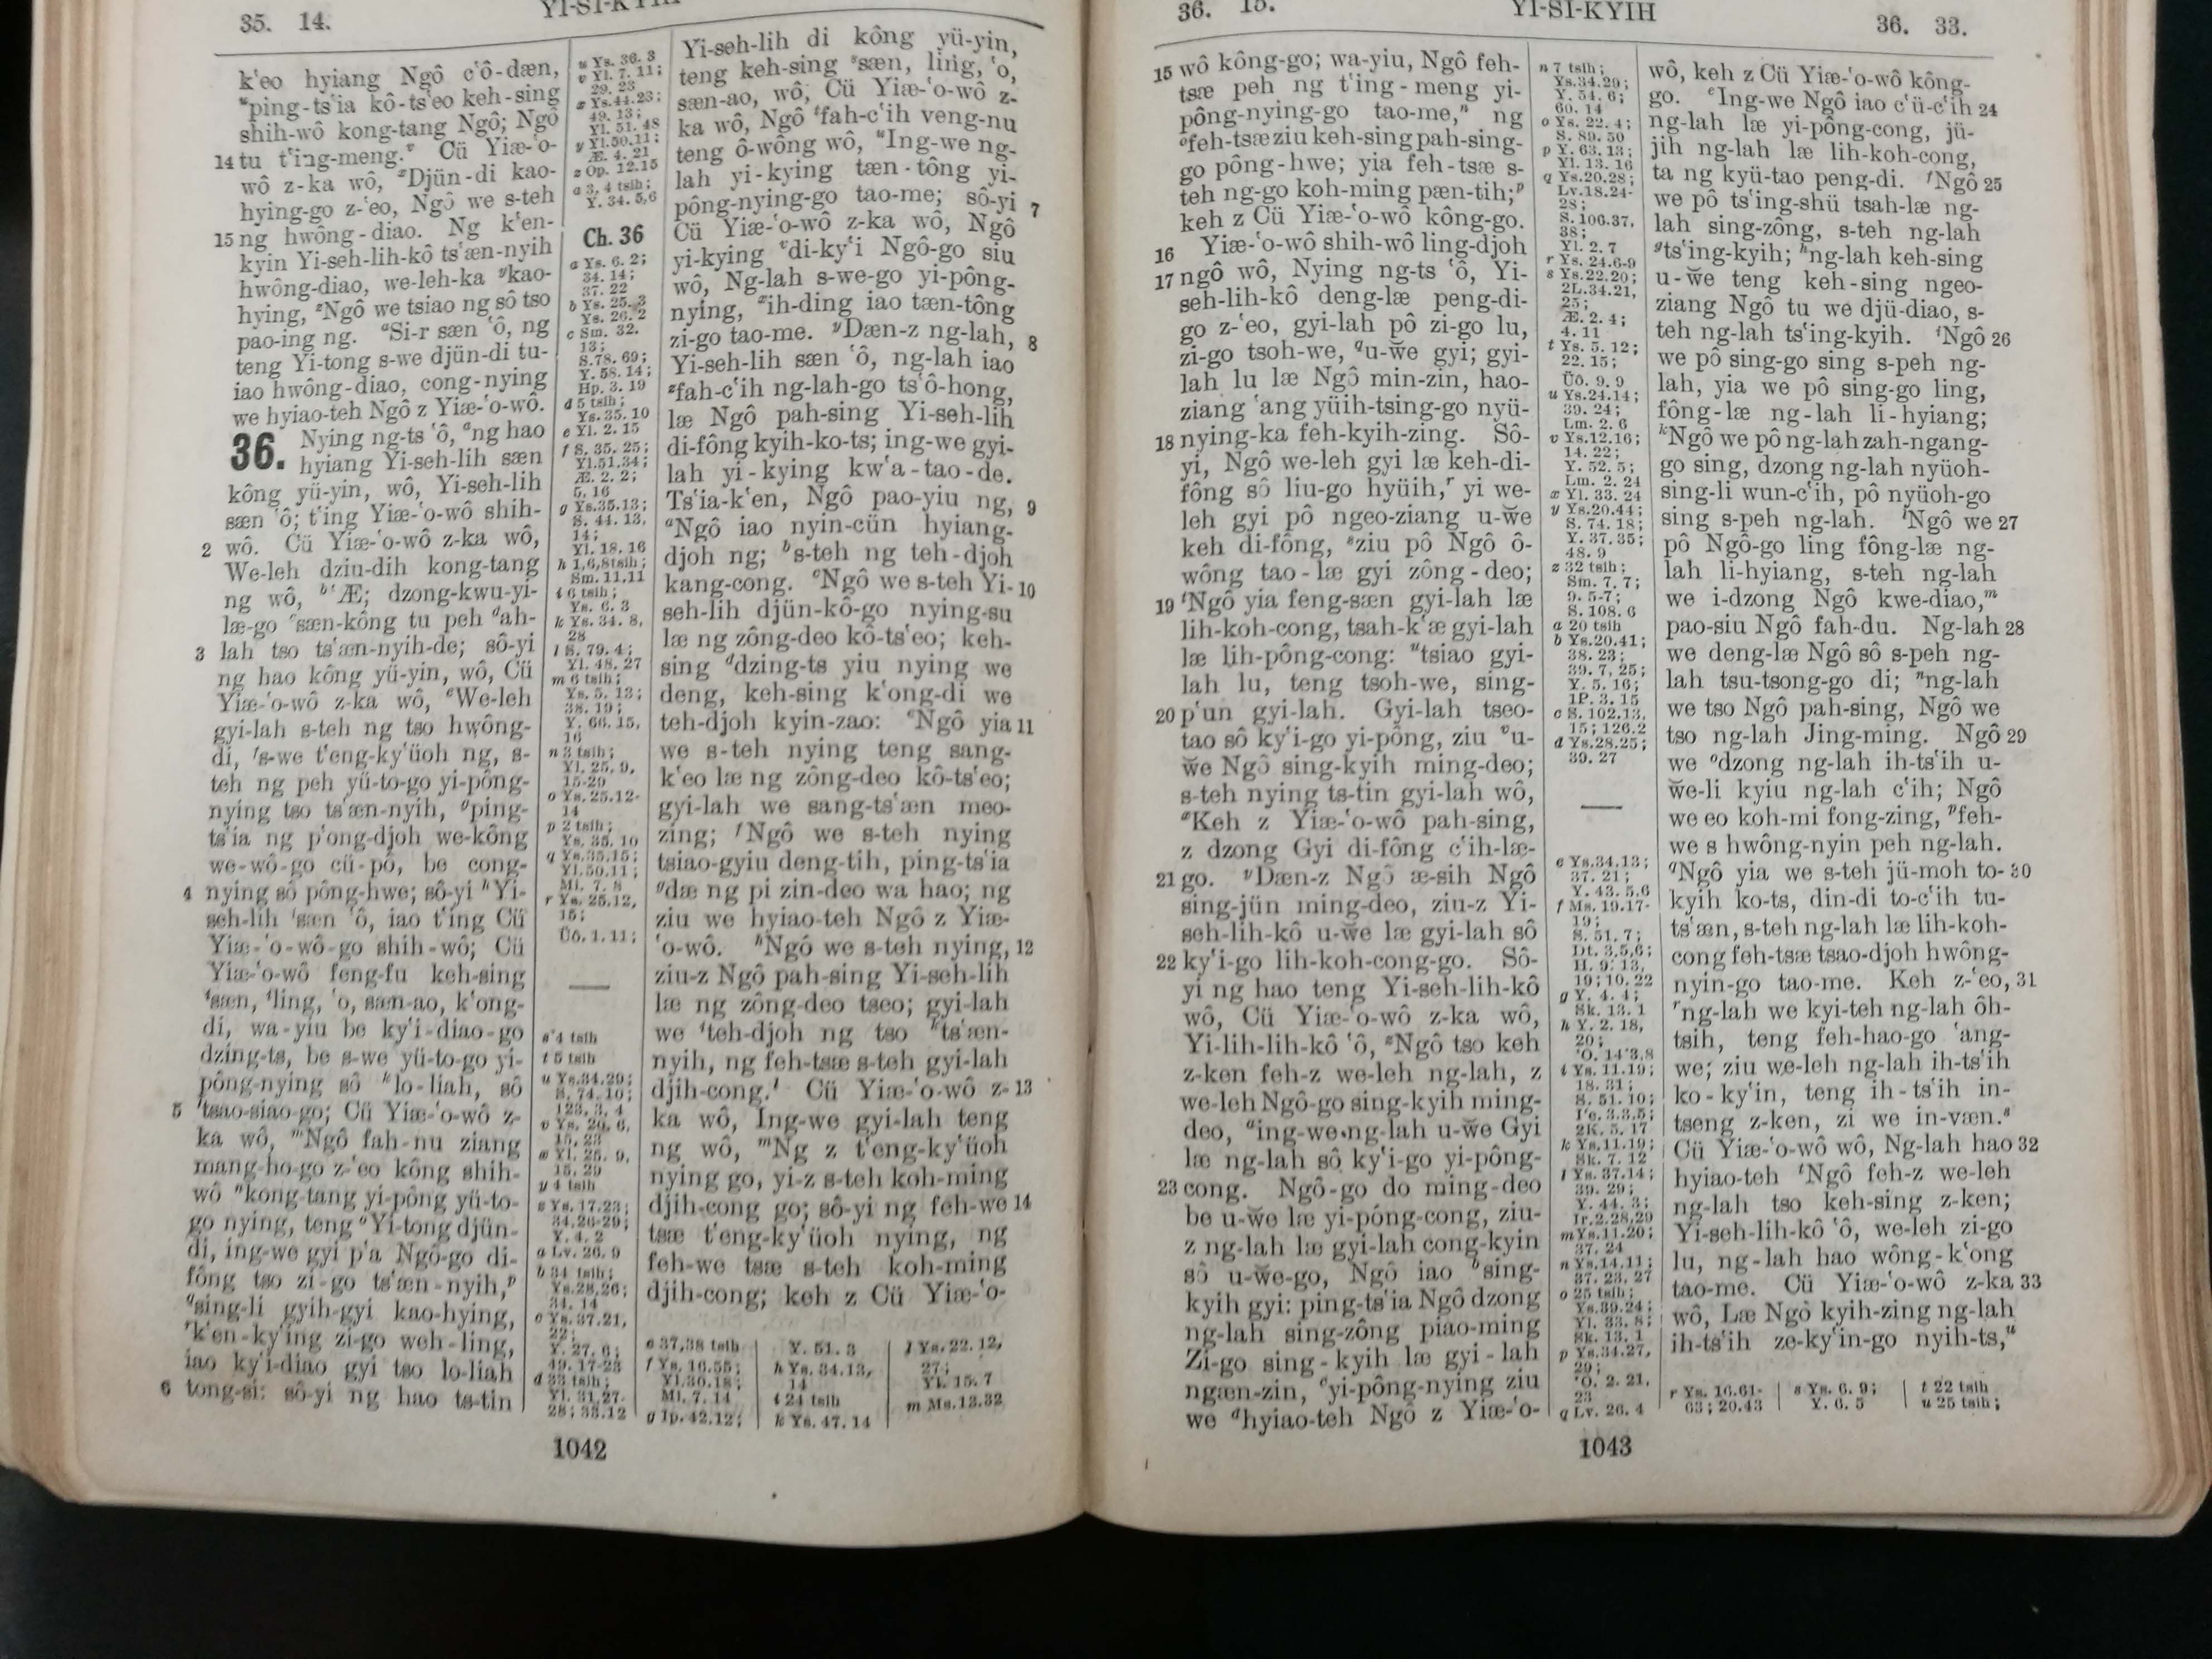 35. 14.
YI-SI-KYIH
k'eo hyiang Ngô c'ô-dæn,
ping-ts'ia kô-ts'eo keh-sing
shih-wô kong-tang Ngô; Ngô
14 tu t'ing-meng. Cü Yiæ-'o-
wô z-ka wô, Djün-di kao-
hying-go z-'eo, Ngô we s-teh
15 ng hwông-diao. Ng k'en-
kyin Yi-seh-lih-kô ts'æn-nyih
hwông-diao, we-leh-ka kao-
hying, Ngô we tsiao ng sô tso
pao-ing ng. Si-r sæn 'ô, ng
teng Yi-tong s-we djün-di tu-
iao hwông-diao, cong-nying
we hyiao-teh Ngô z Yiæ-'o-wô.
36. Nying ng-ts 'ô, ng hao
hyiang Yi-seh-lih sæn
kông yü-yin, wô, Yi-seh-lih
sæn 'ô; t'ing Yiæ-'o-wô shih-
2 wô. Cü Yiæ-'o-wô z-ka wô,
We-leh dziu-dih kong-tang
ng wô, 'Æ; dzong-kwu-yi-
læ-go sæn-kông tu peh ah-
3 lah tso ts'æn-nyih-de; sô-yi
ng hao kông yü-yin, wô, Cü
Yiæ-'o-wô z-ka wô, We-leh
gyi-lah s-teh ng tso hwông-
di, s-we t'eng-ky'üoh ng, s-
teh ng peh yü-to-go yi-pông-
nying tso ts'æn-nyih, ping-
ts'ia ng p'ong-djoh we-kông
we-wô-go cü-pô, be cong-
4 nying sô pông-hwe; sô-yi Yi-
seh-lih sæn 'ô, iao t'ing Cü
Yiæ-'o-wô-go shih-wô; Cü
Yiæ-'o-wô feng-fu keh-sing
sæn, ling, 'o, sæn-ao, k'ong-
di, wa-yiu be ky'i-diao-go
dzing-ts, be s-we yü-to-go yi-
pông-nying sô lo-liah, sô
5 tsao-siao-go; Cü Yiæ-'o-wô z-
ka wô, Ngô fah-nu ziang
mang-ho-go z-'eo kông shih-
wô kong-tang yi-pông yü-to-
go nying, teng Yi-tong djün-
di, ing-we gyi p'a Ngô-go di-
fông tso zi-go ts'æn-nyih,
sing-li gyih-gyi kao-hying,
k'en-ky'ing zi-go weh-ling,
iao ky'i-diao gyi tso lo-liah
6 tong-si: sô-yi ng hao ts-tin
u Ys. 36. 3
v Yl. 7. 11;
29. 23
x Ys. 44. 23;
49. 13;
Yl. 51. 48
y Yl. 50. 11;
Æ. 4. 21
z Op. 12. 15
a 3, 4 tsih;
Y. 34. 5, 6
Ch. 36
a Ys. 6. 2;
34. 14;
37. 22
b Ys. 25. 3
Ys. 26. 2
c Sm. 32.
13;
S. 78. 69;
Y. 58. 14;
Hp. 3. 19
d 5 tsih;
Ys. 35. 10
e Yl. 2. 15
f S. 35. 25;
Yl. 51. 34;
Æ. 2. 2;
5. 16
g Ys. 35. 13;
S. 44. 13,
14;
Yl. 18. 16
h 1, 6, 8 tsih;
Sm. 11. 11
i 6 tsih;
Ys. 6. 3
k Ys. 34. 8,
28
l S. 79. 4;
Yl. 48. 27
m 6 tsih;
Ys. 5. 13;
38. 19;
Y. 66. 15,
16
n 3 tsih;
Yl. 25. 9,
15-29
o Ys. 25. 12-
14
p 2 tsih;
Ys. 35. 10
q Ys. 35. 15;
Yl. 50. 11;
Mi. 7. 8
r Ys. 25. 12,
15;
Üô. 1. 11;
s 4 tsih
t 5 tsih
u Ys. 34. 29;
S. 74. 10;
123. 3, 4
v Ys. 20. 6,
15, 23
x Yl. 25. 9,
15, 29
y 4 tsih
z Ys. 17. 23;
34. 26-29;
Y. 4. 2
a Lv. 26. 9
b 34 tsih;
Ys. 28. 26;
34. 14
c Ys. 37. 21,
22;
Y. 27. 6;
49. 17-23
d 33 tsih;
Yl. 31. 27-
28; 33. 12
Yi-seh-lih di kông yü-yin,
teng keh-sing sæn, ling, 'o,
sæn-ao, wô, Cü Yiæ-'o-wô z-
ka wô, Ngô fah-c'ih veng-nu
teng ô-wông wô, Ing-we ng-
lah yi-kying tæn-tông yi-
pông-nying-go tao-me; sô-yi 7
Cü Yiæ-'o-wô z-ka wô, Ngô
yi-kying di-ky'i Ngô-go siu
wô, Ng-lah s-we-go yi-pông-
nying, ih-ding iao tæn-tông
zi-go tao-me. Dæn-z ng-lah, 8
Yi-seh-lih sæn 'ô, ng-lah iao
fah-c'ih ng-lah-go ts'ô-hong,
læ Ngô pah-sing Yi-seh-lih
di-fông kyih-ko-ts; ing-we gyi-
lah yi-kying kw'a-tao-de.
Ts'ia-k'en, Ngô pao-yiu ng, 9
Ngô iao nyin-cün hyiang-
djoh ng; s-teh ng teh-djoh
kang-cong. Ngô we s-teh Yi- 10
seh-lih djün-kô-go nying-su
læ ng zông-deo kô-ts'eo; keh-
sing dzing-ts yiu nying we
deng, keh-sing k'ong-di we
teh-djoh kyin-zao: Ngô yia 11
we s-teh nying teng sang-
k'eo læ ng zông-deo kô-ts'eo;
gyi-lah we sang-ts'æn meo-
zing; Ngô we s-teh nying
tsiao-gyiu deng-tih, ping-ts'ia
dæ ng pi zin-deo wa hao; ng
ziu we hyiao-teh Ngô z Yiæ-
'o-wô. Ngô we s-teh nying, 12
ziu-z Ngô pah-sing Yi-seh-lih
læ ng zông-deo tseo; gyi-lah
we teh-djoh ng tso ts'æn-
nyih, ng feh-tsæ s-teh gyi-lah
djih-cong. Cü Yiæ-'o-wô z- 13
ka wô, Ing-we gyi-lah teng
ng wô, Ng z t'eng-ky'üoh
nying go, yi-z s-teh koh-ming
djih-cong go; sô-yi ng feh-we 14
tsæ t'eng-ky'üoh nying, ng
feh-we tsæ s-teh koh-ming
djih-cong; keh z Cü Yiæ-'o-
e 37, 38 tsih
f Ys. 16. 55;
Yl. 30. 18;
Mi. 7. 14
g Ip. 42. 12;
Y. 51. 3
h Ys. 34. 13,
14
i 24 tsih
k Ys. 47. 14
l Ys. 22. 12,
27;
Yl. 15. 7
m Ms. 13. 32
1042
36. 15.
YI-SI-KYIH
36. 33.
15 wô kông-go; wa-yiu, Ngô feh-
tsæ peh ng t'ing-meng yi-
pông-nying-go tao-me, ng
feh-tsæ ziu keh-sing pah-sing-
go pông-hwe; yia feh-tsæ s-
teh ng-go koh-ming pæn-tih;
keh z Cü Yiæ-'o-wô kông-go.
16 Yiæ-'o-wô shih-wô ling-djoh
17 ngô wô, Nying ng-ts 'ô, Yi-
seh-lih-kô deng-læ peng-di-
go z-'eo, gyi-lah pô zi-go lu,
zi-go tsoh-we, u-we gyi; gyi-
lah lu læ Ngô min-zin, hao-
ziang 'ang yüih-tsing-go nyü-
18 nying-ka feh-kyih-zing. Sô-
yi, Ngô we-leh gyi læ keh-di-
fông sô liu-go hyüih, yi we-
leh gyi pô ngeo-ziang u-we
keh di-fông, ziu pô Ngô ô-
wông tao-læ gyi zông-deo;
19 Ngô yia feng-sæn gyi-lah læ
lih-koh-cong, tsah-k'æ gyi-lah
læ lih-pông-cong: tsiao gyi-
lah lu, teng tsoh-we, sing-
20 p'un gyi-lah. Gyi-lah tseo-
tao sô ky'i-go yi-pông, ziu u-
we Ngô sing-kyih ming-deo;
s-teh nying ts-tin gyi-lah wô,
Keh z Yiæ-'o-wô pah-sing,
z dzong Gyi di-fông c'ih-læ-
21 go. Dæn-z Ngô æ-sih Ngô
sing-jün ming-deo, ziu-z Yi-
seh-lih-kô u-we læ gyi-lah sô
22 ky'i-go lih-koh-cong-go. Sô-
yi ng hao teng Yi-seh-lih-kô
wô, Cü Yiæ-'o-wô z-ka wô,
Yi-lih-lih-kô 'ô, Ngô tso keh
z-ken feh-z we-leh ng-lah, z
we-leh Ngô-go sing-kyih ming-
deo, ing-we ng-lah u-we Gyi
læ ng-lah sô ky'i-go yi-pông-
23 cong. Ngô-go do ming-deo
be u-we læ yi-pông-cong, ziu-
z ng-lah læ gyi-lah cong-kyin
sô u-we-go, Ngô iao sing-
kyih gyi: ping-ts'ia Ngô dzong
ng-lah sing-zông piao-ming
Zi-go sing-kyih læ gyi-lah
ngæn-zin, yi-pông-nying ziu
we hyiao-teh Ngô z Yiæ-'o-
n 7 tsih;
Ys. 34. 29;
Y. 54. 6;
60. 14
o Ys. 22. 4;
S. 89. 50
p Y. 63. 13;
Yl. 13. 16
q Ys. 20. 28;
Lv. 18. 24-
28;
S. 106. 37,
38;
Yl. 2. 7
r Ys. 24. 6-9
s Ys. 22. 20;
2L. 34. 21,
25;
Æ. 2. 4;
4. 11
t Ys. 5. 12;
22. 15;
Üô. 9. 9
u Ys. 24. 14;
39. 24;
Lm. 2. 6
v Ys. 12. 16;
14. 22;
Y. 52. 5;
Lm. 2. 24
x Yl. 33. 24
y Ys. 20. 44;
S. 74. 18;
Y. 37. 35;
48. 9
z 32 tsih;
Sm. 7. 7;
9. 5-7;
S. 108. 6
a 20 tsih
b Ys. 20. 41;
38. 23;
39. 7, 25;
Y. 5. 16;
1P. 3. 15
c S. 102. 13,
15; 126. 2
d Ys. 28. 25;
39. 27
e Ys. 34. 13;
37. 21;
Y. 43. 5, 6
f Ms. 19. 17-
19;
S. 51. 7;
Dt. 3. 5, 6;
H. 9. 13,
19; 10. 22
g Y. 4. 4;
Sk. 13. 1
h Y. 2. 18,
20;
'O. 14. 3, 8
i Ys. 11. 19;
18. 31;
S. 51. 10;
2K. 5. 17
k Ys. 11. 19;
Sk. 7. 12
l Ys. 37. 14;
39. 29;
Y. 44. 3;
Ir. 2. 28, 29
m Ys. 11. 20;
37. 24
n Ys. 14. 11;
37. 23, 27
o 25 tsih;
Ys. 39. 24;
Yl. 33. 8;
Sk. 13. 1
p Ys. 34. 27,
29;
'O. 2. 21,
23
q Lv. 26. 4
wô, keh z Cü Yiæ-'o-wô kông-
go. Ing-we Ngô iao c'ü-c'ih 24
ng-lah læ yi-pông-cong, jü-
jih ng-lah læ lih-koh-cong,
ta ng kyü-tao peng-di. Ngô 25
we pô ts'ing-shü tsah-læ ng-
lah sing-zông, s-teh ng-lah
ts'ing-kyih; ng-lah keh-sing
u-we teng keh-sing ngeo-
ziang Ngô tu we djü-diao, s-
teh ng-lah ts'ing-kyih. Ngô 26
we pô sing-go sing s-peh ng-
lah, yia we pô sing-go ling,
fông-læ ng-lah li-hyiang;
Ngô we pô ng-lah zah-ngang-
go sing, dzong ng-lah nyüoh-
sing-li wun-c'ih, pô nyüoh-go
sing s-peh ng-lah. Ngô we 27
pô Ngô-go ling fông-læ ng-
lah li-hyiang, s-teh ng-lah
we i-dzong Ngô kwe-diao,
pao-siu Ngô fah-du. Ng-lah 28
we deng-læ Ngô sô s-peh ng-
lah tsu-tsong-go di; ng-lah
we tso Ngô pah-sing, Ngô we
tso ng-lah Jing-ming. Ngô 29
we dzong ng-lah ih-ts'ih u-
we-li kyiu ng-lah c'ih; Ngô
we eo koh-mi fong-zing, feh-
we s hwông-nyin peh ng-lah.
Ngô yia we s-teh jü-moh to- 30
kyih ko-ts, din-di to-c'ih tu-
ts'æn, s-teh ng-lah læ lih-koh-
cong feh-tsæ tsao-djoh hwông-
nyin-go tao-me. Keh z-'eo, 31
ng-lah we kyi-teh ng-lah ôh-
tsih, teng feh-hao-go 'ang-
we; ziu we-leh ng-lah ih-ts'ih
ko-ky'in, teng ih-ts'ih in-
tseng z-ken, zi we in-væn.
Cü Yiæ-'o-wô wô, Ng-lah hao 32
hyiao-teh Ngô feh-z we-leh
ng-lah tso keh-sing z-ken;
Yi-seh-lih-kô 'ô, we-leh zi-go
lu, ng-lah hao wông-k'ong
tao-me. Cü Yiæ-'o-wô z-ka 33
wô, Læ Ngô kyih-zing ng-lah
ih-ts'ih ze-ky'in-go nyih-ts,
r Ys. 16. 61-
63; 20. 43
s Ys. 6. 9;
Y. 6. 5
t 22 tsih
u 25 tsih;
1043